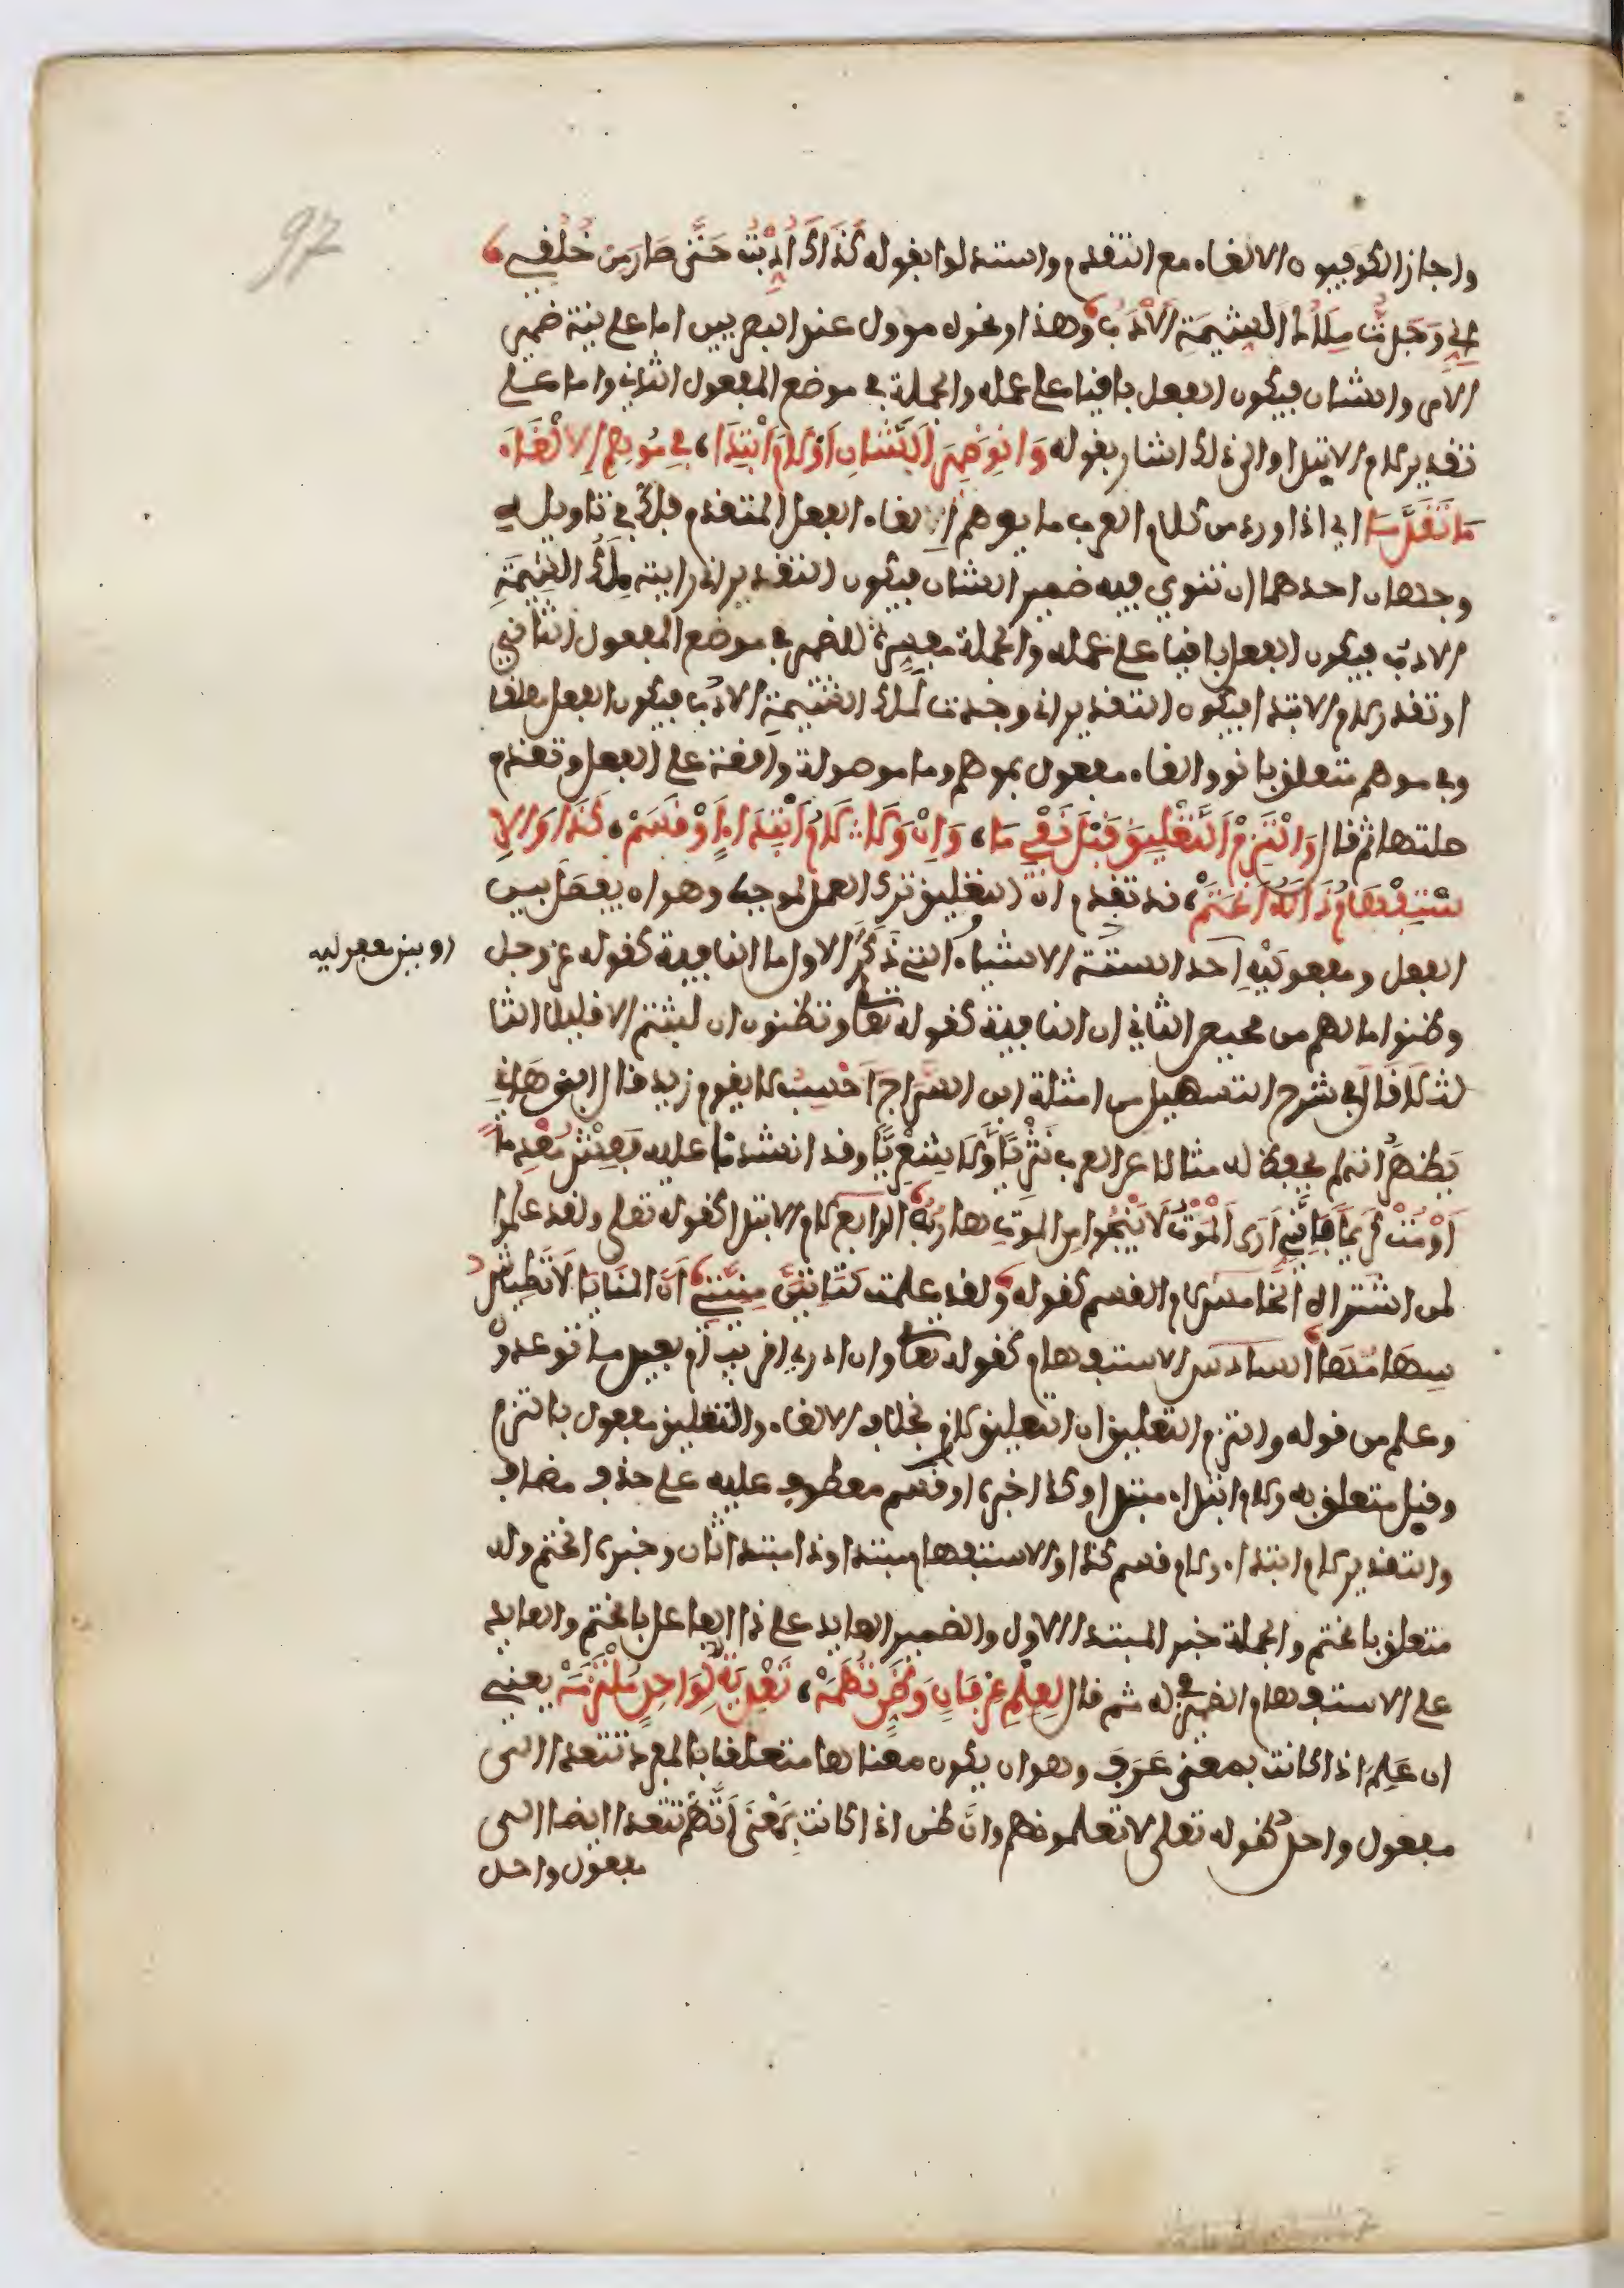 97
واجاز الكوفيون الالغاء مع التقدم واستدلوا بقوله كَذَاكَ أُدِّبْتُ حَتَّى صَارَ مِنْ خُلُقِي
إِنِّي وَجَدتُّ مِلَاكُ الشِّيمَةِ الأَدَبُ وهذا ونحوه موول عند البصريين اما على نية ضمير
الامر والشان فيكون الفعل باقيا على عمله والجملة في موضع المفعول الثاني واما على
تقدير لام الابتدا والى ذلك اشار بقوله وَانْوِ ضَمِيرَ الشَّانِ أَوْ لَامَ ابْتِدَا، فِي مُوهِمٍ إِلْغَاءَ
مَا تَقَدَّمَا اي اذا ورد من كلام العرب ما يوهم الغاء الفعل المتقدم فلك في تاويله
وجهان احدهما ان تنوي فيه ضمير الشان فيكون التقدير اني رايته مِلَاكُ الشِّيمَةِ
الادبُ فيكون الفعل باقيا على عمله والجملة مفسرة للضمير في موضع المفعول الثاني
او تقدر لام الابتدا فيكون التقدير اني وجدت لملاك الشيمةِ الادبُ فيكون الفعل معلقا
وفي موهم متعلق بانو والغاء مفعول بموهم وما موصولة واقعة على الفعل وتقدم
صلتها ثم قال وَالْتَزِمِ التَّعْلِيقَ قَبْلَ نَفْيِ مَا، وَإِنْ وَلَا لَامُ ابْتِدَاءٍ أَوْ قَسَمْ، كَذَا وَالِا
سْتِفْهَامُ ذَا لَهُ انْحَتَمْ، قد تقدم ان التعليق ترك العمل لموجب وهو ان يفصل بين
الفعل ومفعوليْهِ احد الستة الاشياء التي ذكر الاول ما النافية كقوله عز وجل
او بين مفعوليه
وظنوا ما لهم من محيص الثاني ان النافية كقوله تعلى وتظنون ان لبثتم الا قليلا الثا
لث لا قال في شرح التسهيل من امثلة ابن السراج احسب لا يقوم زيد قال ابن هانئ
يظهر انه لم يحفظ له مثالا عن العرب نثريًّا وَلا شِعْرِيًّا وقد انشدْنا عليه فَعِشْ مُعْدِمًا
أَوْ مُتْ كَرِيمًا فَإِنَّنِي أَرَى الْمَوْتَ لَا يَنْجُوا مِنَ الْمَوْتِ هَارِبُهْ الرابع لام الابتدا كقوله تعلى ولقد علموا
لمن اشتراه الخامس لام القسم كقوله وَلقد علمت لتَاتِيَنَّ مِنيَّتِي أَنَّ المَنَايَا لَا تَطِيشُ
سِهَامُهَا السادس الاستفهام كقوله تعلى وان ادري اقريب ام بعيد ما توعدون
وعلم من قوله والتزم التعليق ان التعليق لازم بخلاف الالغاء والتعليق مفعول بالتزم
وقبل متعلق به ولام ابتداء مبتدا وكذا خبره او قسم معطوف عليه على حذف مضاف
والتقدير لام ابتداء ولام قسم كذا والاستفهام مبتدا وذا مبتدا ثان وخبره انحتم وله
متعلق بانحتم والجملة خبر المبتدا الاول والضمير العايد على ذا الفاعل بانحتم والعايد
على الاستفهام الضمير في له ثم قال لِعِلْمِ عِرْفَانٍ وَظَنِّ تُهَمَهْ، تَعْدِيَةٌ لِوَاحِدٍ مُلْتَزَمَهْ يعني
ان عَلِمَ اذا كانت بمعنى عَرَفَ وهو ان يكون معناها متعلقا بالمفرد تتعدا الى
مفعول واحد كقوله تعلى لا تعلمونهم وان ظن اذا كانت بمَعْنَى اتَّهَم تتعدا ايضا الى
مفعول واحد